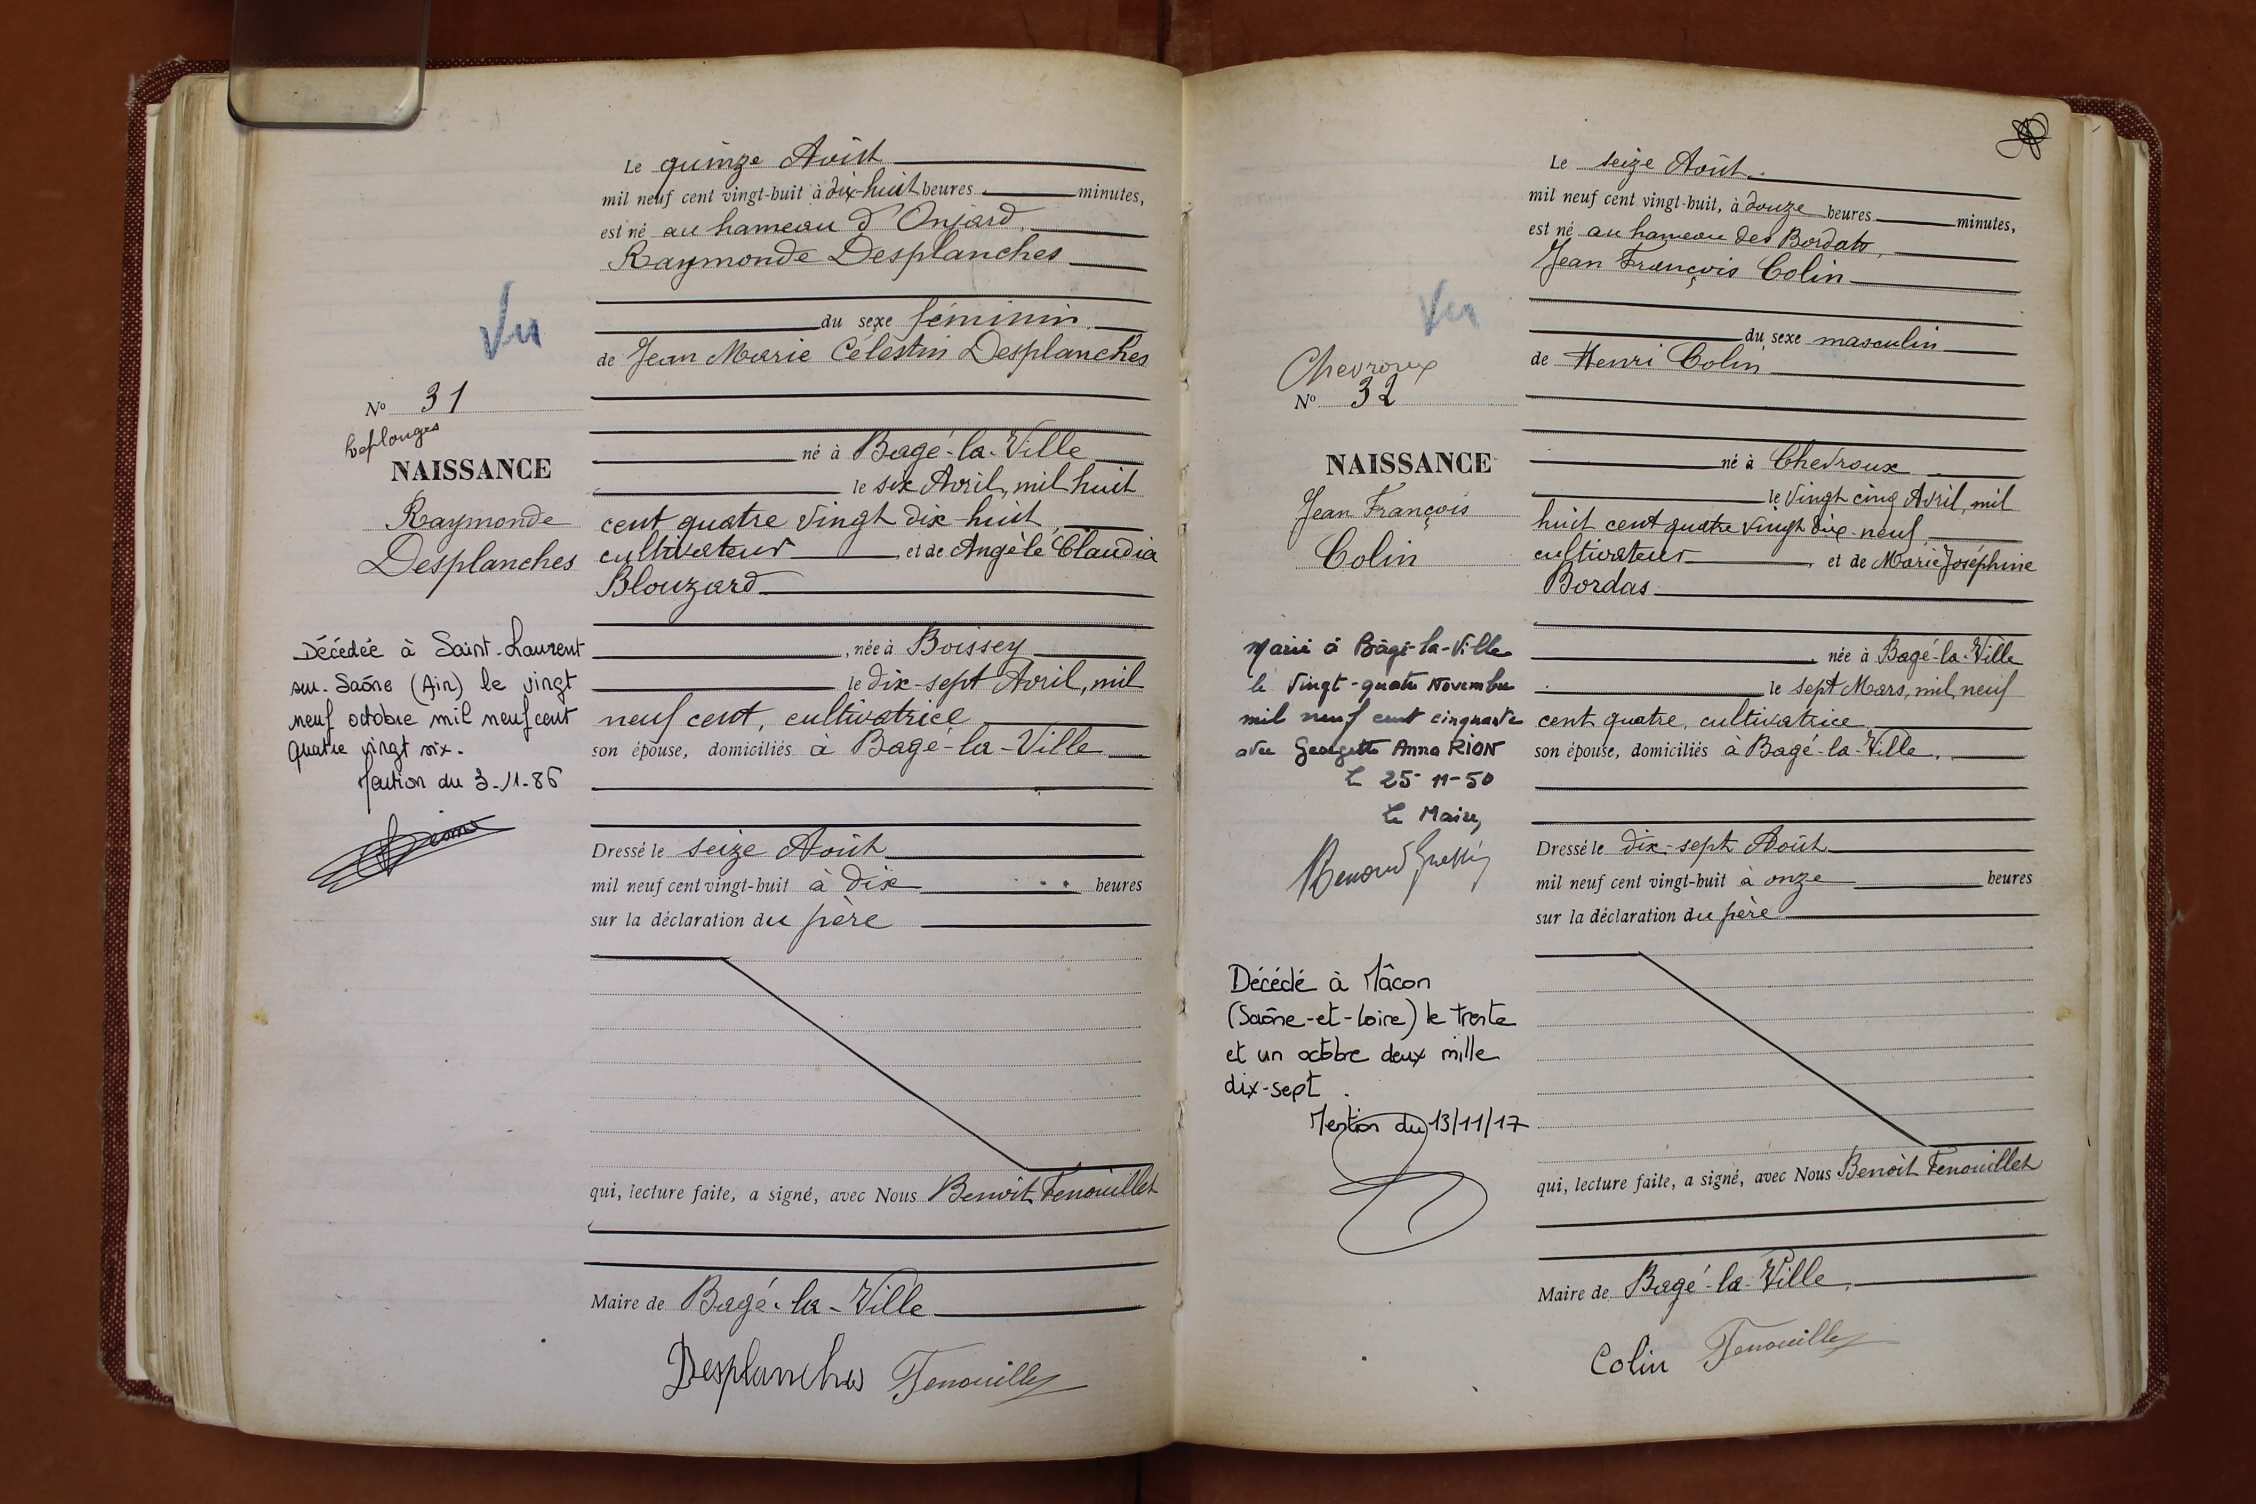 Le quinze Août
mil neuf cent vingt-huit à dix-huit heures minutes,
est né au hameau d'Onjard,
Raymonde Desplanches
du sexe féminin.
de Jean Marie Célestin Desplanches
né à Bagé-la-Ville
le six Avril, mil huit
cent quatre vingt dix-huit,
cultivateur et de Angèle Claudia
Blouzard
, née à Boissey
le dix-sept Avril, mil
neuf cent, cultivatrice
son épouse, domiciliés à Bagé-la-Ville
Dressé le seize Août
mil neuf cent vingt-huit à dix heures
sur la déclaration du père
qui, lecture faite, a signé, avec Nous Benoît Fenouillet
Maire de Bagé-la-Ville
Desplanches Fenouillet
Vu
No 31
Replonges
NAISSANCE
Raymonde
Desplanches
Décédée à Saint-Laurent
sur-Saône (Ain) le vingt
neuf octobre mil neuf cent
quatre vingt six.
Mention du 3-11-86
Le seize Août.
mil neuf cent vingt-huit, à douze heures minutes,
est né au hameau des Bordats,
Jean François Colin
du sexe masculin
de Henri Colin
né à Chevroux
le vingt cinq Avril, mil
huit cent quatre vingt dix-neuf,
cultivateur, et de Marie Joséphine
Bordas
, née à Bagé-la-Ville
le sept Mars, mil neuf
cent quatre, cultivatrice
son épouse, domiciliés à Bagé-la-Ville.
Dressé le dix-sept Août
mil neuf cent vingt-huit à onze heures
sur la déclaration du père
qui, lecture faite, a signé, avec Nous Benoît Fenouillet
Maire de Bagé-la-Ville.
Colin Fenouillet
Vu
Chevroux
No 32
NAISSANCE
Jean François
Colin
Marié à Bâgé-la-Ville
le Vingt-quatre Novembre
mil neuf cent cinquante
avec Georgette Anna RION
le 25-11-50
Le Maire,
Décédé à Mâcon
(Saône-et-Loire) le trente
et un octobre deux mille
dix-sept.
Mention du 13/11/17